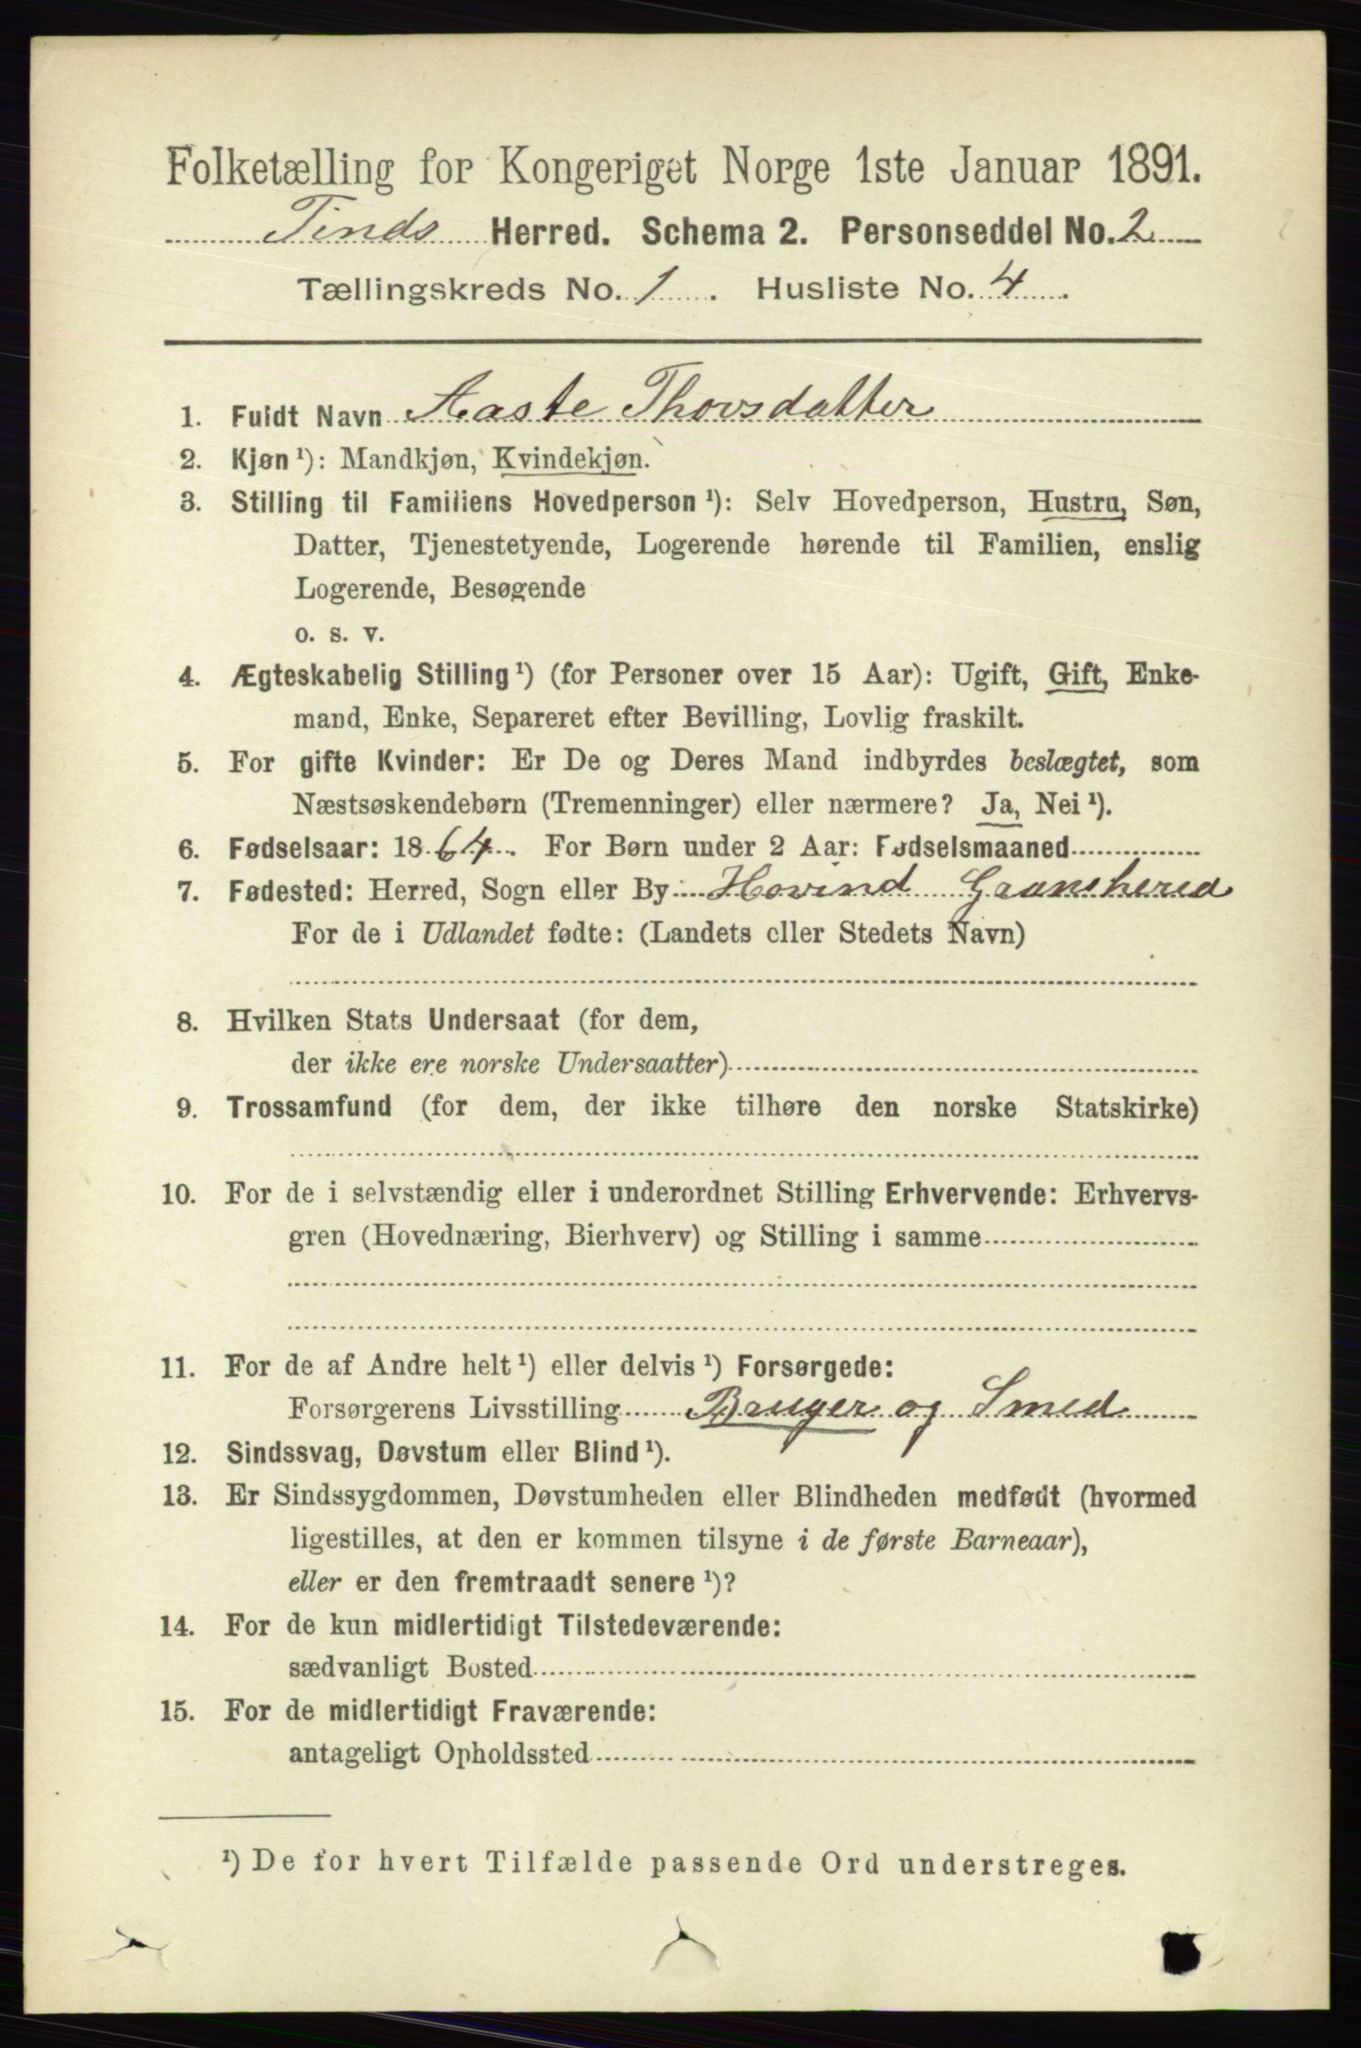 Folketælling for Kongeriget Norge 1ste Januar 1891.
Tinds Herred. Schema 2. Personseddel No. 2
Tællingskreds No. 1. Husliste No. 4.
1. Fuldt Navn Aaste Thovsdatter
2. Kjøn ¹): Mandkjøn, Kvindekjøn.
3. Stilling til Familiens Hovedperson ¹): Selv Hovedperson, Hustru, Søn,
Datter, Tjenestetyende, Logerende hørende til Familien, enslig
Logerende, Besøgende
o. s. v.
4. Ægteskabelig Stilling ¹) (for Personer over 15 Aar): Ugift, Gift, Enke-
mand, Enke, Separeret efter Bevilling, Lovlig fraskilt.
5. For gifte Kvinder: Er De og Deres Mand indbyrdes beslægtet, som
Næstsøskendebørn (Tremenninger) eller nærmere? Ja, Nei ¹).
6. Fødselsaar: 1864. For Børn under 2 Aar: Fødselsmaaned
7. Fødested: Herred, Sogn eller By Hovind Graensherred
For de i Udlandet fødte: (Landets eller Stedets Navn)
8. Hvilken Stats Undersaat (for dem,
der ikke ere norske Undersaatter)
9. Trossamfund (for dem, der ikke tilhøre den norske Statskirke)
10. For de i selvstændig eller i underordnet Stilling Erhvervende: Erhvervs-
gren (Hovednæring, Bierhverv) og Stilling i samme
11. For de af Andre helt ¹) eller delvis ¹) Forsørgede:
Forsørgerens Livsstilling Bruger og Smed
12. Sindssvag, Døvstum eller Blind ¹).
13. Er Sindssygdommen, Døvstumheden eller Blindheden medfødt (hvormed
ligestilles, at den er kommen tilsyne i de første Barneaar),
eller er den fremtraadt senere ¹)?
14. For de kun midlertidigt Tilstedeværende:
sædvanligt Bosted
15. For de midlertidigt Fraværende:
antageligt Opholdssted
¹) De for hvert Tilfælde passende Ord understreges.